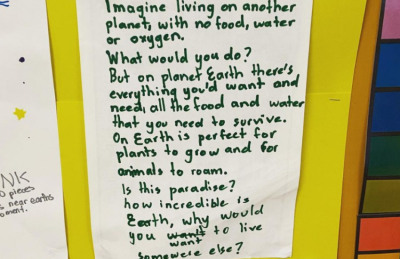 Imagine living on another
planet, with no food, water
or oxygen.
What would you do?
But on planet Earth there's
everything you'd want and
need, all the food and water
that you need to survive.
On Earth is perfect for
plants to grow and for
animals to roam.
Is this paradise?
how incredible is
Earth, why would
you wan't to live
want
somewere else?
NK
pieces
is near earths
oment.